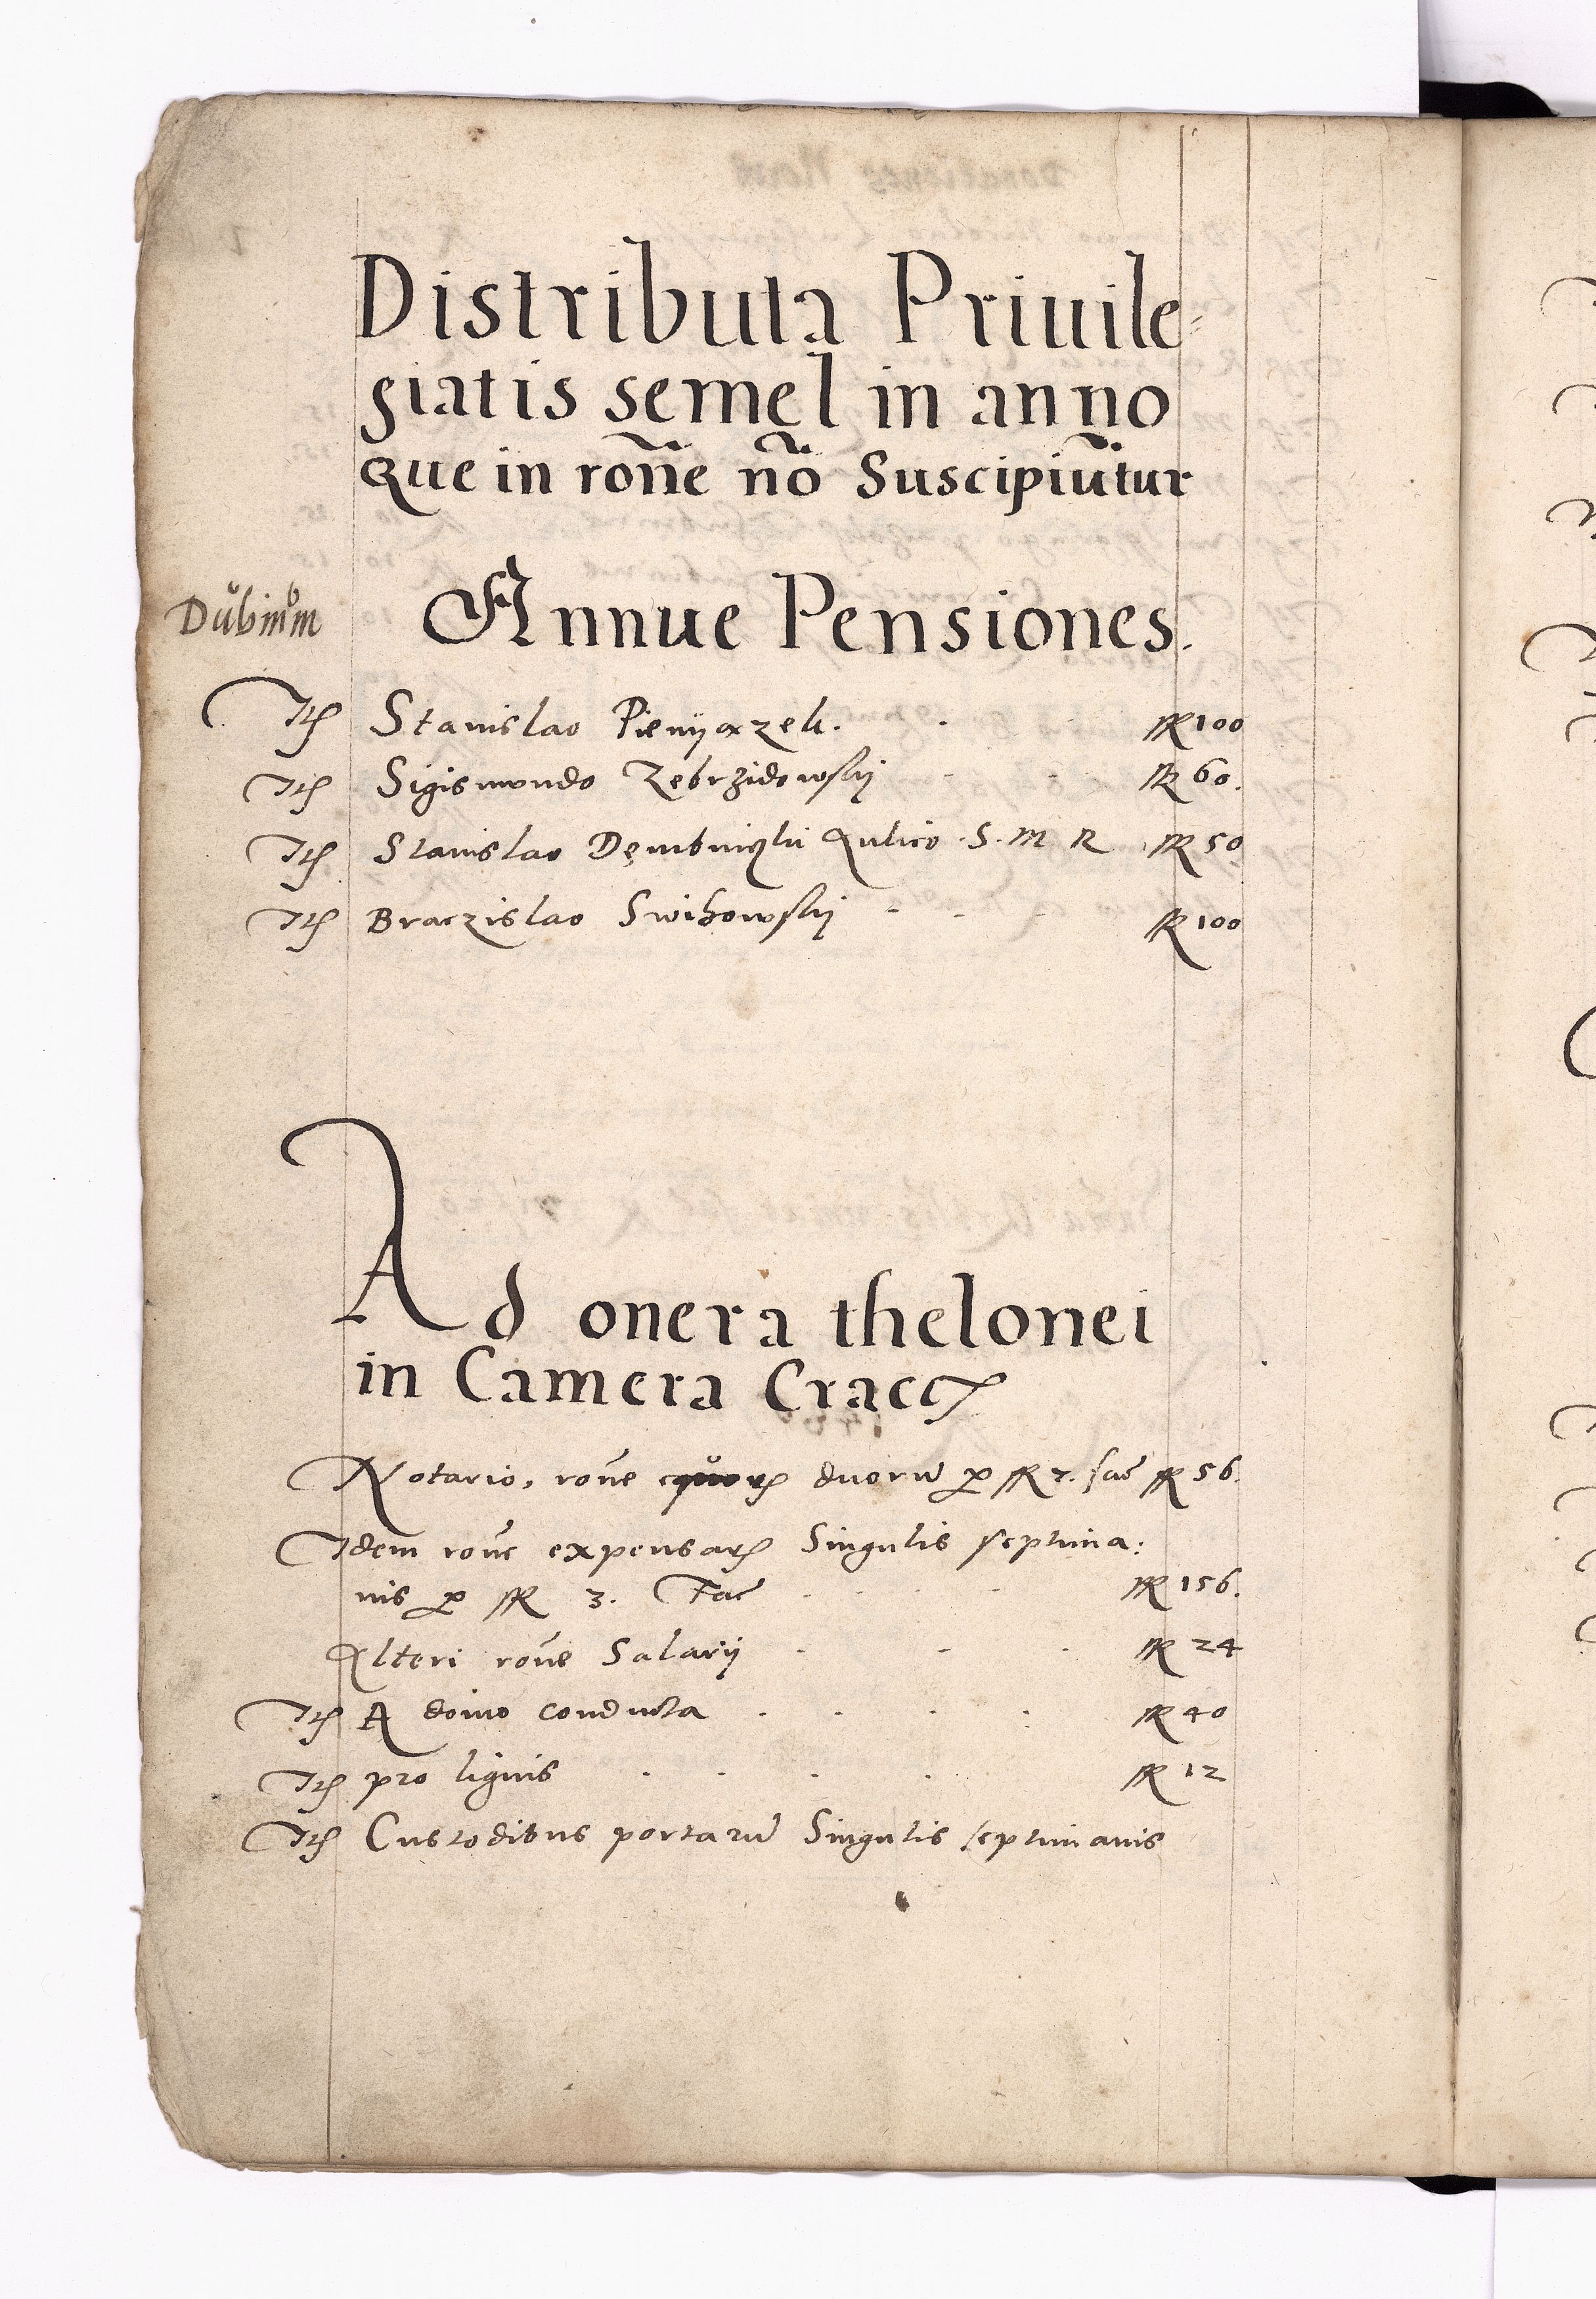 Distributa Priuile=
giatis semel in anno
Que in rōne nō Suscipiūtur
Dubium
Annue Pensiones.
Itē Stanislao Pienyązek. fl 100
Itē Sigismondo Zebrzidowskij fl 60.
Itē Stanislao Dęmbinski Aulico S. M R fl 50
Itē Braczislao Swihowskij fl 100
Ad onera thelonei
in Camera Cracc
Notario, rōne equorū duorū p fl 7. fac fl 56.
Idem rōne expensarū Singulis septima:
nis p fl 3. Fac fl 156.
Alteri rōne Salarij fl 24
Itē A domo conducta fl 40
Itē pro lignis fl 12
Itē Custodibus portarū Singulis septimanis